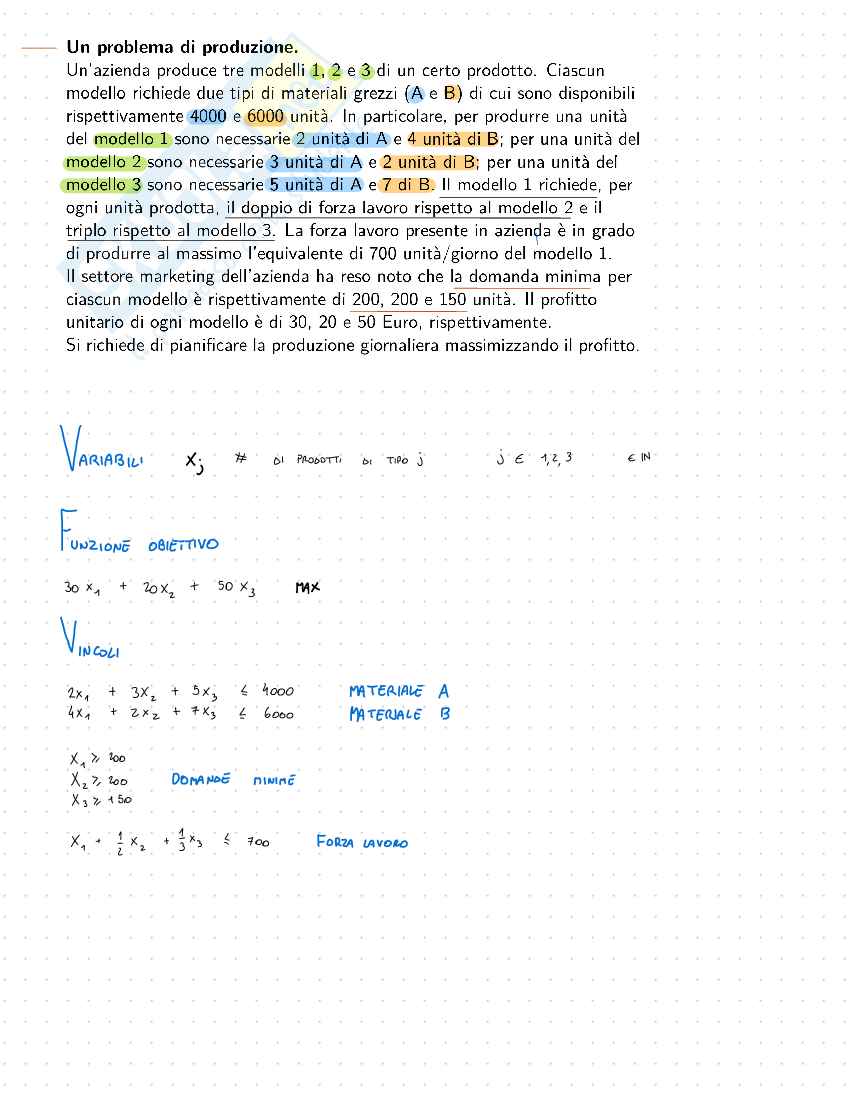 Un problema di produzione.
Un'azienda produce tre modelli 1, 2 e 3 di un certo prodotto. Ciascun
modello richiede due tipi di materiali grezzi (A e B) di cui sono disponibili
rispettivamente 4000 e 6000 unità. In particolare, per produrre una unità
del modello 1 sono necessarie 2 unità di A e 4 unità di B; per una unità del
modello 2 sono necessarie 3 unità di A e 2 unità di B; per una unità del
modello 3 sono necessarie 5 unità di A e 7 di B. Il modello 1 richiede, per
ogni unità prodotta, il doppio di forza lavoro rispetto al modello 2 e il
triplo rispetto al modello 3. La forza lavoro presente in azienda è in grado
di produrre al massimo l'equivalente di 700 unità/giorno del modello 1.
Il settore marketing dell'azienda ha reso noto che la domanda minima per
ciascun modello è rispettivamente di 200, 200 e 150 unità. Il profitto
unitario di ogni modello è di 30, 20 e 50 Euro, rispettivamente.
Si richiede di pianificare la produzione giornaliera massimizzando il profitto.
VARIABILI xj # DI PRODOTTI DI TIPO j j ∈ 1,2,3 ∈ IN
FUNZIONE OBIETTIVO
30 x₁ + 20 x₂ + 50 x₃ MAX
VINCOLI
2x₁ + 3x₂ + 5x₃ ≤ 4000 MATERIALE A
4x₁ + 2x₂ + 7x₃ ≤ 6000 MATERIALE B
x₁ ≥ 200
x₂ ≥ 200 DOMANDE MINIME
x₃ ≥ 150
x₁ + 1/2 x₂ + 1/3 x₃ ≤ 700 FORZA LAVORO